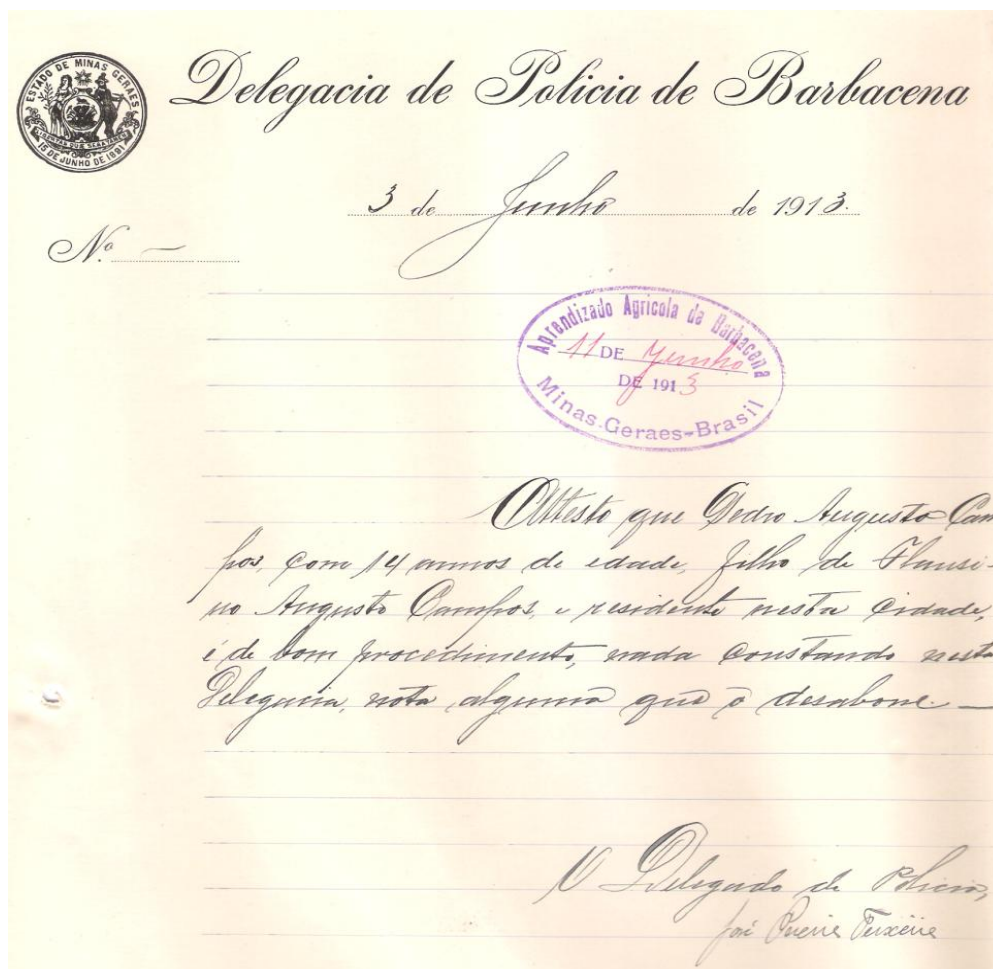 ESTADO DE MINAS GERAES
15 DE JUNHO DE 1891
Delegacia de Policia de Barbacena
3 de Junho de 1913.
Nº —
Aprendizado Agricola de Barbacena
11 DE Junho
DE 1913
Minas-Geraes-Brasil
Attesto que Pedro Augusto Cam
pos, com 14 annos de edade, filho de Flausi-
no Augusto Campos, e residente nesta cidade,
é de bom procedimento, nada constando nesta
Delegacia, nota alguma que o desabone. —
O Delegado de Policia,
José Teixeira